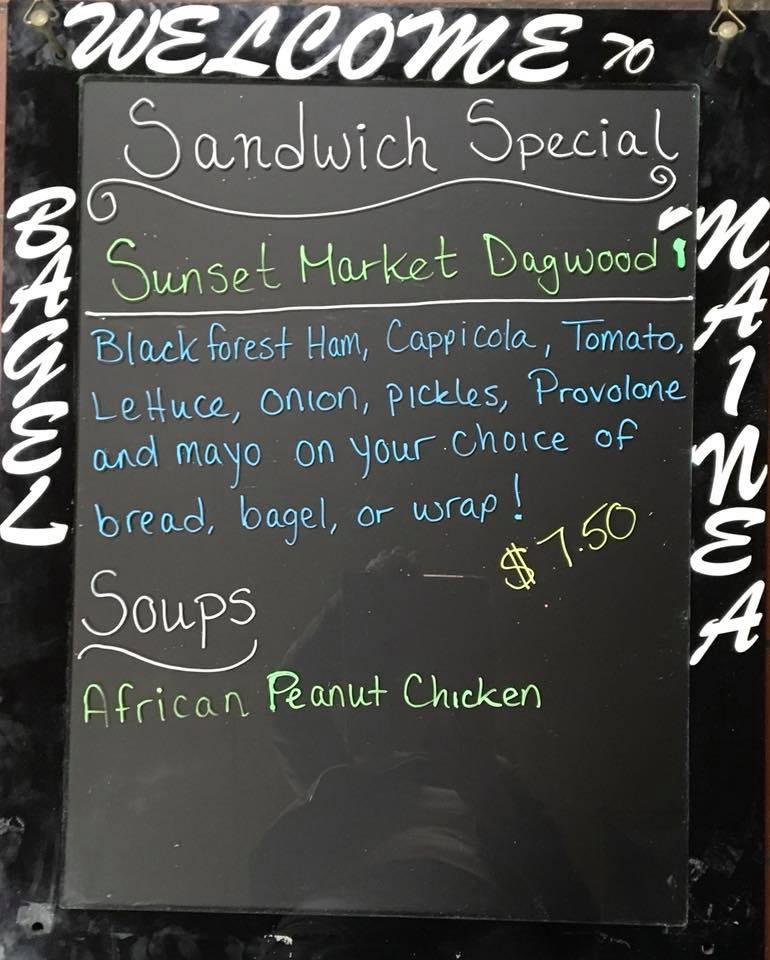 WELCOME TO
BAGEL
MAINEA
Sandwich Special
Sunset Market Dagwood!
Black forest Ham, Cappicola, Tomato,
Lettuce, onion, pickles, Provolone
and mayo on your choice of
bread, bagel, or wrap!
$7.50
Soups
African Peanut Chicken